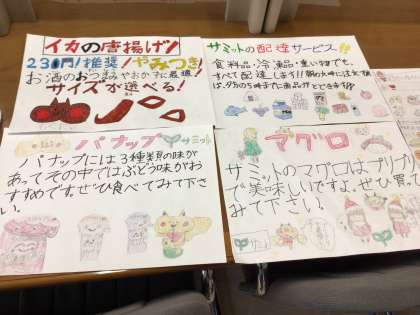 イカの唐揚げ!
230円!推奨!やみつき!
お酒のおつまみやおかずに最適!
サイズが選べる!
サミットの配達サービス!!
食料品・冷凍品・重い物でも、
すべて配達します!!朝の
パナップ サミット
パナップには3種類の味が
あってその中ではぶどう味がお
すすめです。ぜひ食べてみて下さ
い。
マグロ
サミットのマグロはプリプリ
で美味しいですよ。ぜひ買って
みて下さい。
サミット